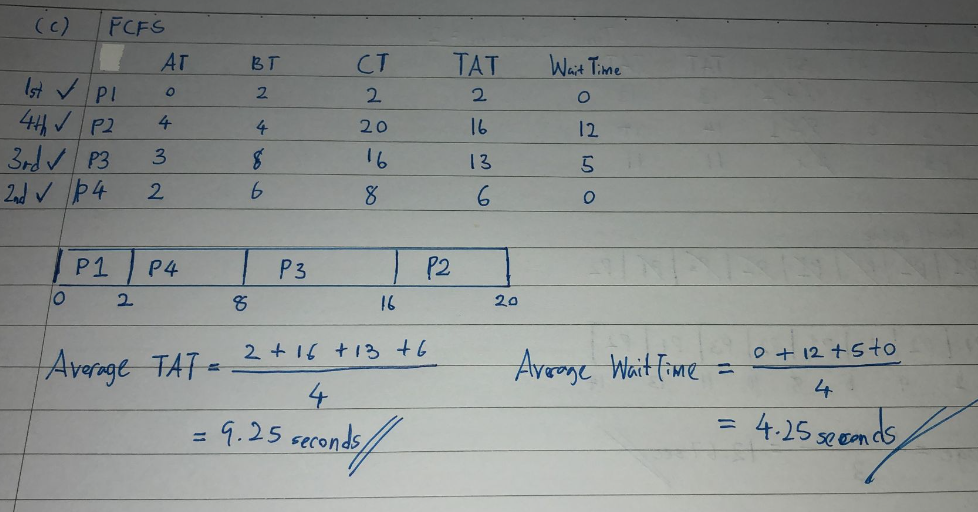 (c) FCFS
AT BT CT TAT Wait Time
1st ✓ P1 0 2 2 2 0
4th ✓ P2 4 4 20 16 12
3rd ✓ P3 3 8 16 13 5
2nd ✓ P4 2 6 8 6 0
P1 P4 P3 P2
0 2 8 16 20
Average TAT = 2 + 16 + 13 + 6
4
= 9.25 seconds
Average Wait Time = 0 + 12 + 5 + 0
4
= 4.25 seconds